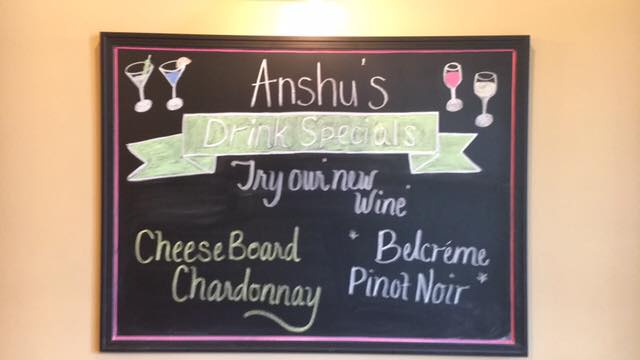 Anshu's
Drink Specials
Try our new
Wine
Cheese Board
Chardonnay
* Belcréme
Pinot Noir *